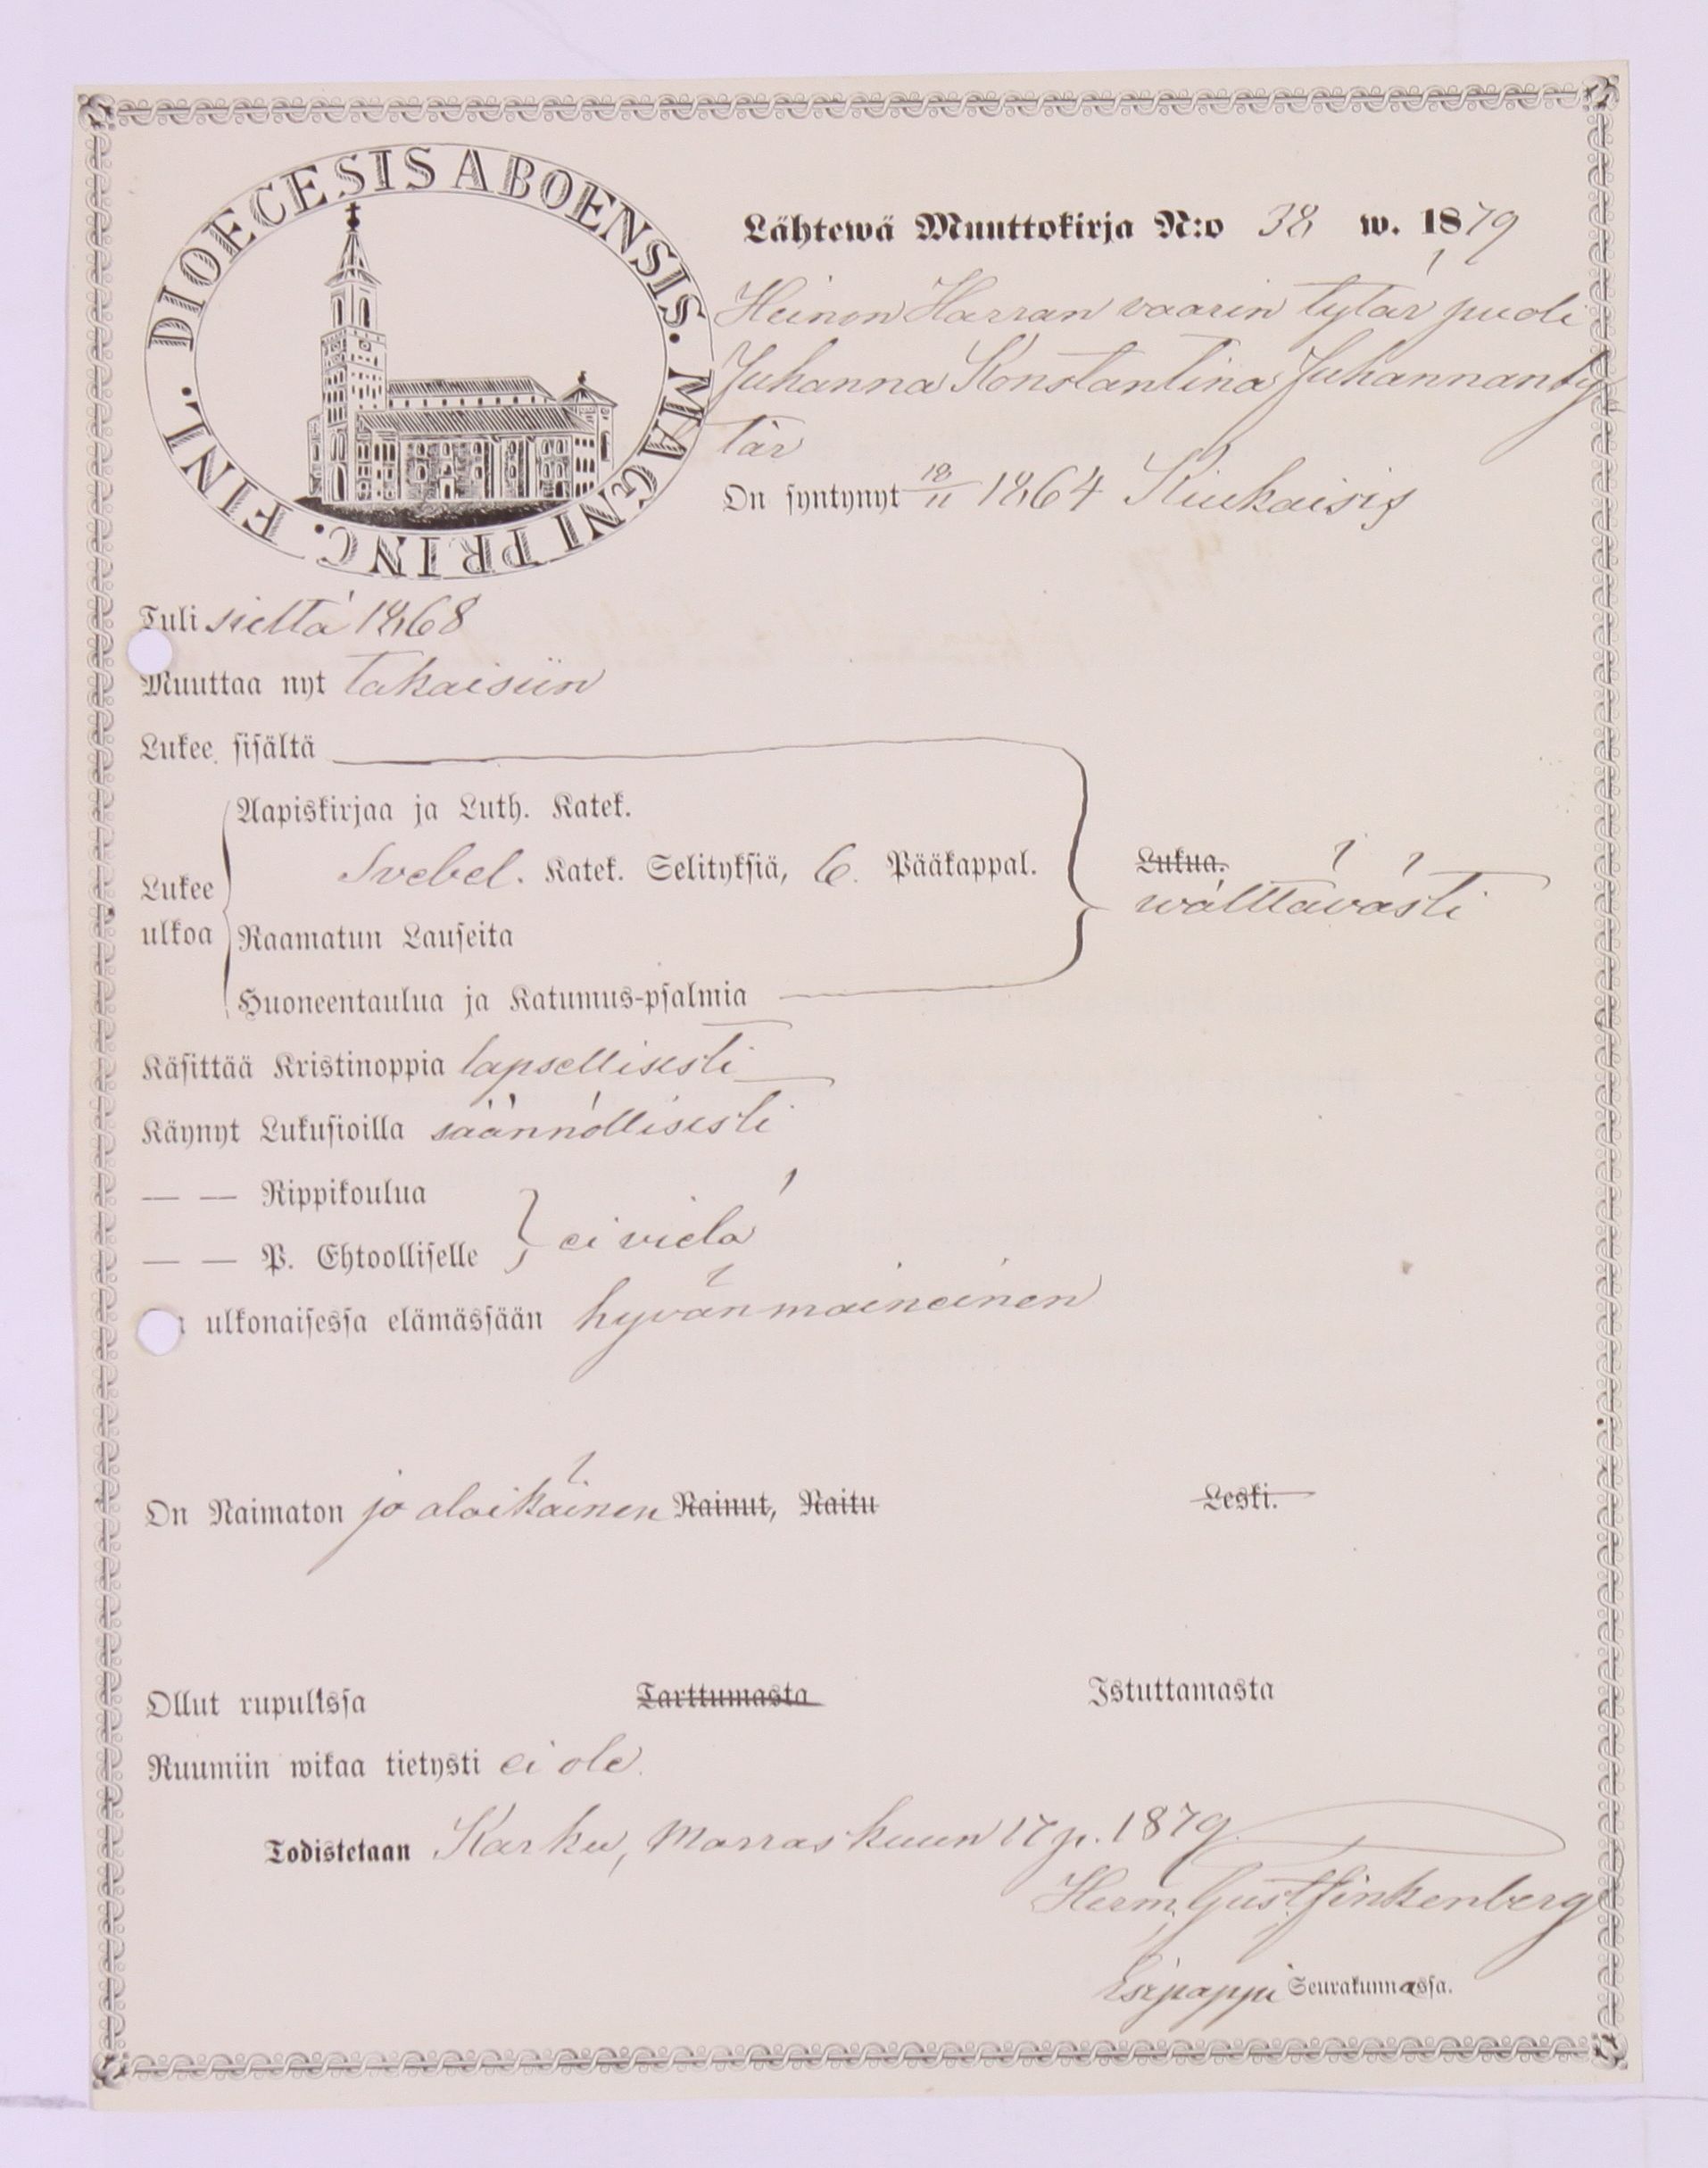 DIOECESIS ABOENSIS. MAGNI PRINC. FINL.
Lähtewä Muuttokirja N:o 38 w. 1879
Heinon Harran vaarin tytär puoli
Juhanna Konstantina Juhannanty
tär
On syntynyt 18/11 1864 Kiukaisis
Tuli sieltä 1868
Muuttaa nyt takaisiin
Lukee sisältä
Aapiskirjaa ja Luth. Katek.
Svebel. Katek. Selityksiä, 6. Pääkappal.
Lukua.
wälttävästi
Lukee
ulkoa
Raamatun Lauseita
Huoneentaulua ja Katumus-psalmia
Käsittää Kristinoppia lapsellisesti
Käynyt Lukusioilla säännöllisesti
— — Rippikoulua
— — P. Ehtoolliselle
ei vielä
ulkonaisessa elämässään hyvänmaineinen
On Naimaton jo alaikäinen Nainut, Naitu Leski.
Ollut rupulissa Tarttumasta Istuttamasta
Ruumiin wikaa tietysti ei ole.
Todistetaan Karku, Marraskuun 17 p. 1879.
Herm. Gust. Finkenberg
Esipappi Seurakunnassa.